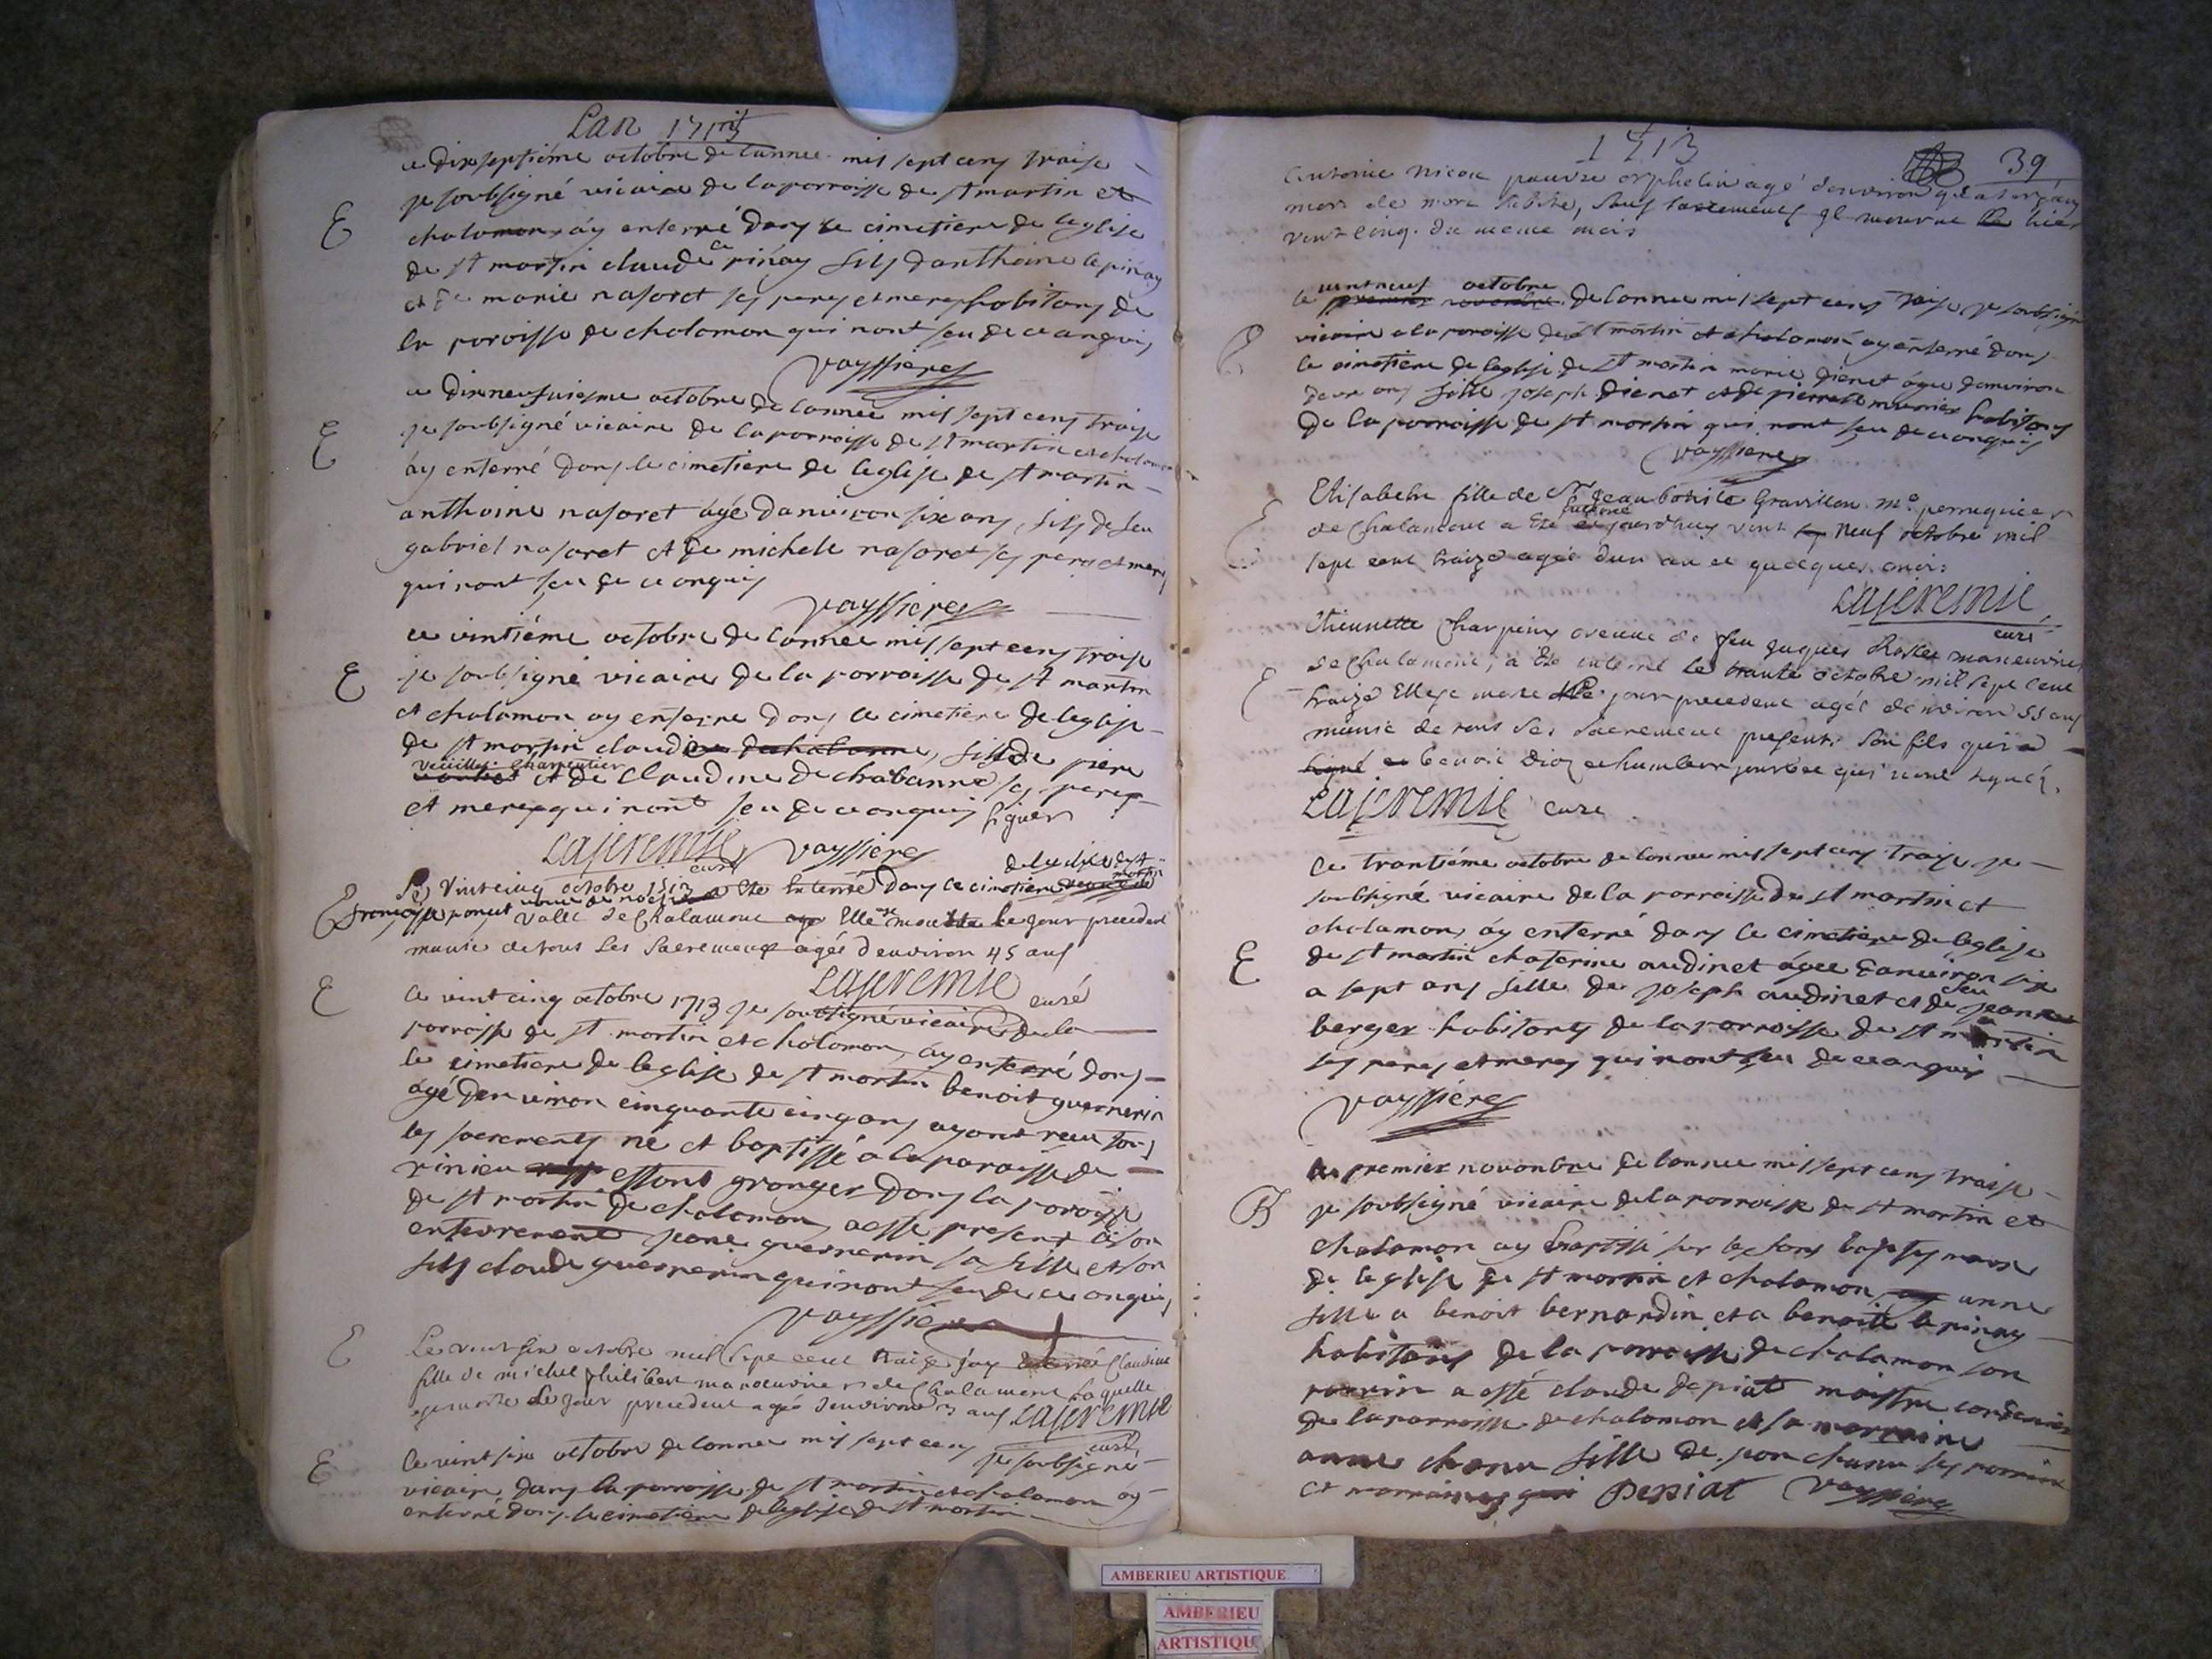 Lan 1713
ce dixseptiéme octobre de lannee mil sept cens traise
je soubsigné vicaire de la parroisse de st martin et
E
chalamon ay enterré dans le cimetiere de leglise
de st martin claude le pinay fils danthoine lepinay
et de marie nasaret ses peres et meres habitans de
la paroisse de chalamon qui nont seu de ce enquis
Vayssieres
ce dixneufuiesme octobre de lannee mil sept cens traise
E
je soubsigné vicaire de la parroisse de st martin et chalamon
ay enterré dans le cimetiere de leglise de st martin
anthoine nasaret agé danviron six ans, fils de feu
gabriel nasaret et de michele nasaret ses peres et meres
qui nont seu de ce enquis
Vayssieres
ce vintiéme octobre de lannee mil sept cens traise
E
je soubsigné vicaire de la parroisse de st martin
et chalamon ay enterre dans le cimetiere de leglise
de st martin claudine dechabanne, fille de piere
veüillet charpentier
et de Claudine de chabanne ses peres
et meres qui nont seu de ce enquis signer
Lajeremie curé Vayssieres
de leglise de st martin
Le Vintcinq octobre 1713 a Ete Enterré dans le cimetiere
E
françoise ponset valle de Chalamont Elle mourut le jour precedent
munie de tous Les Sacremens agée d'environ 45 ans
Lajeremie curé
E
ce vint cinq octobre 1713 je soubsigné vicaire de la
parroisse de st martin et chalamon, ay enterré dans
le cimetiere de leglise de st martin benoit guernerin
agé denuiron cinquante cinq ans ayant receu tous
les sacremens né et baptissé a la paroisse de
rinieu estant granger dans la paroisse
de st martin de chalamon, a esté present a son
enterrement jeane guernerin sa fille et son
fils claude guernerin qui nont seu de ce enquis
Vayssieres
E
Le vint six octobre mil sept cent traize j'ay Enterré Claudine
fille de michel philibert manoeuvrier de Chalamont laquelle
est morte Le jour precedent agée d'environ 3 ans Lajeremie
curé
E
ce vint six octobre de lannee mil sept cens je soubsigné
vicaire dans la parroisse de st martin et chalamon ay
enterré dans le cimetiere de leglise de st martin
1713
39
Antoine nicou pauvre orphelin agé d'environ quatorze ans
mort de mort subite, sans sacremens il mourut le hier
vint cinq du meme mois
vintneuf octobre
le premier novembre de lannee mil sept cens traise je soubsigné
vicaire a la paroisse de st martin et chalamon ay enterré dans
le cimetiere de leglise de st martin marie dienet agee danviron
deux ans fille joseph dienet et de pierrete munier habitans
de la parroisse de st martin qui nont seu de ce enquis
Vayssieres
E
Elisabeth fille de Sr Jean batiste Gravillon me perruquier
Enterré
de Chalamont a Ete aujourdhuy vint neuf octobre mil
sept cent traize agée d'un an et quelques mois
Lajeremie
curé
E
Etienette Charpeins veuve de feu jaques Rosset manoeuvrier
de Chalamont, a Ete enterré le trante octobre mil sept cent
traize Elle est morte le jour precedent agée d'environ 55 ans
munie de tous les sacremens presents son fils qui a
signé et benoit Dioz chanteur jure qui n'ont signé.
Lajeremie curé
Ce trantiéme octobre de lannee mil sept cens traise je
soubsigné vicaire de la parroisse de st martin et
chalamon, ay enterré dans le cimetiere de leglise
E
de st martin chaterine audinet agee danviron six
a sept ans fille de joseph audinet et de feu jeanne
berger habitans de la parroisse de st martin
ses peres et meres qui nont seu de ce enquis
Vayssieres
le premier novonbre de lannee mil sept cens traise
B
je soubsigné vicaire de la parroisse de st martin et
chalamon ay baptissé sur les fons baptismaux
de leglise de st martin et chalamon, anne
fille a benoit bernardin et a benoite lepinay
habitans de la parroisse de chalamon son
parrin a esté claude depiat maistre cordonier
de la parroisse de chalamon et sa marraine
anne chanu fille de jean chanu ses parrins
et marraines Depiat Vayssieres
AMBERIEU ARTISTIQUE
AMBERIEU
ARTISTIQU